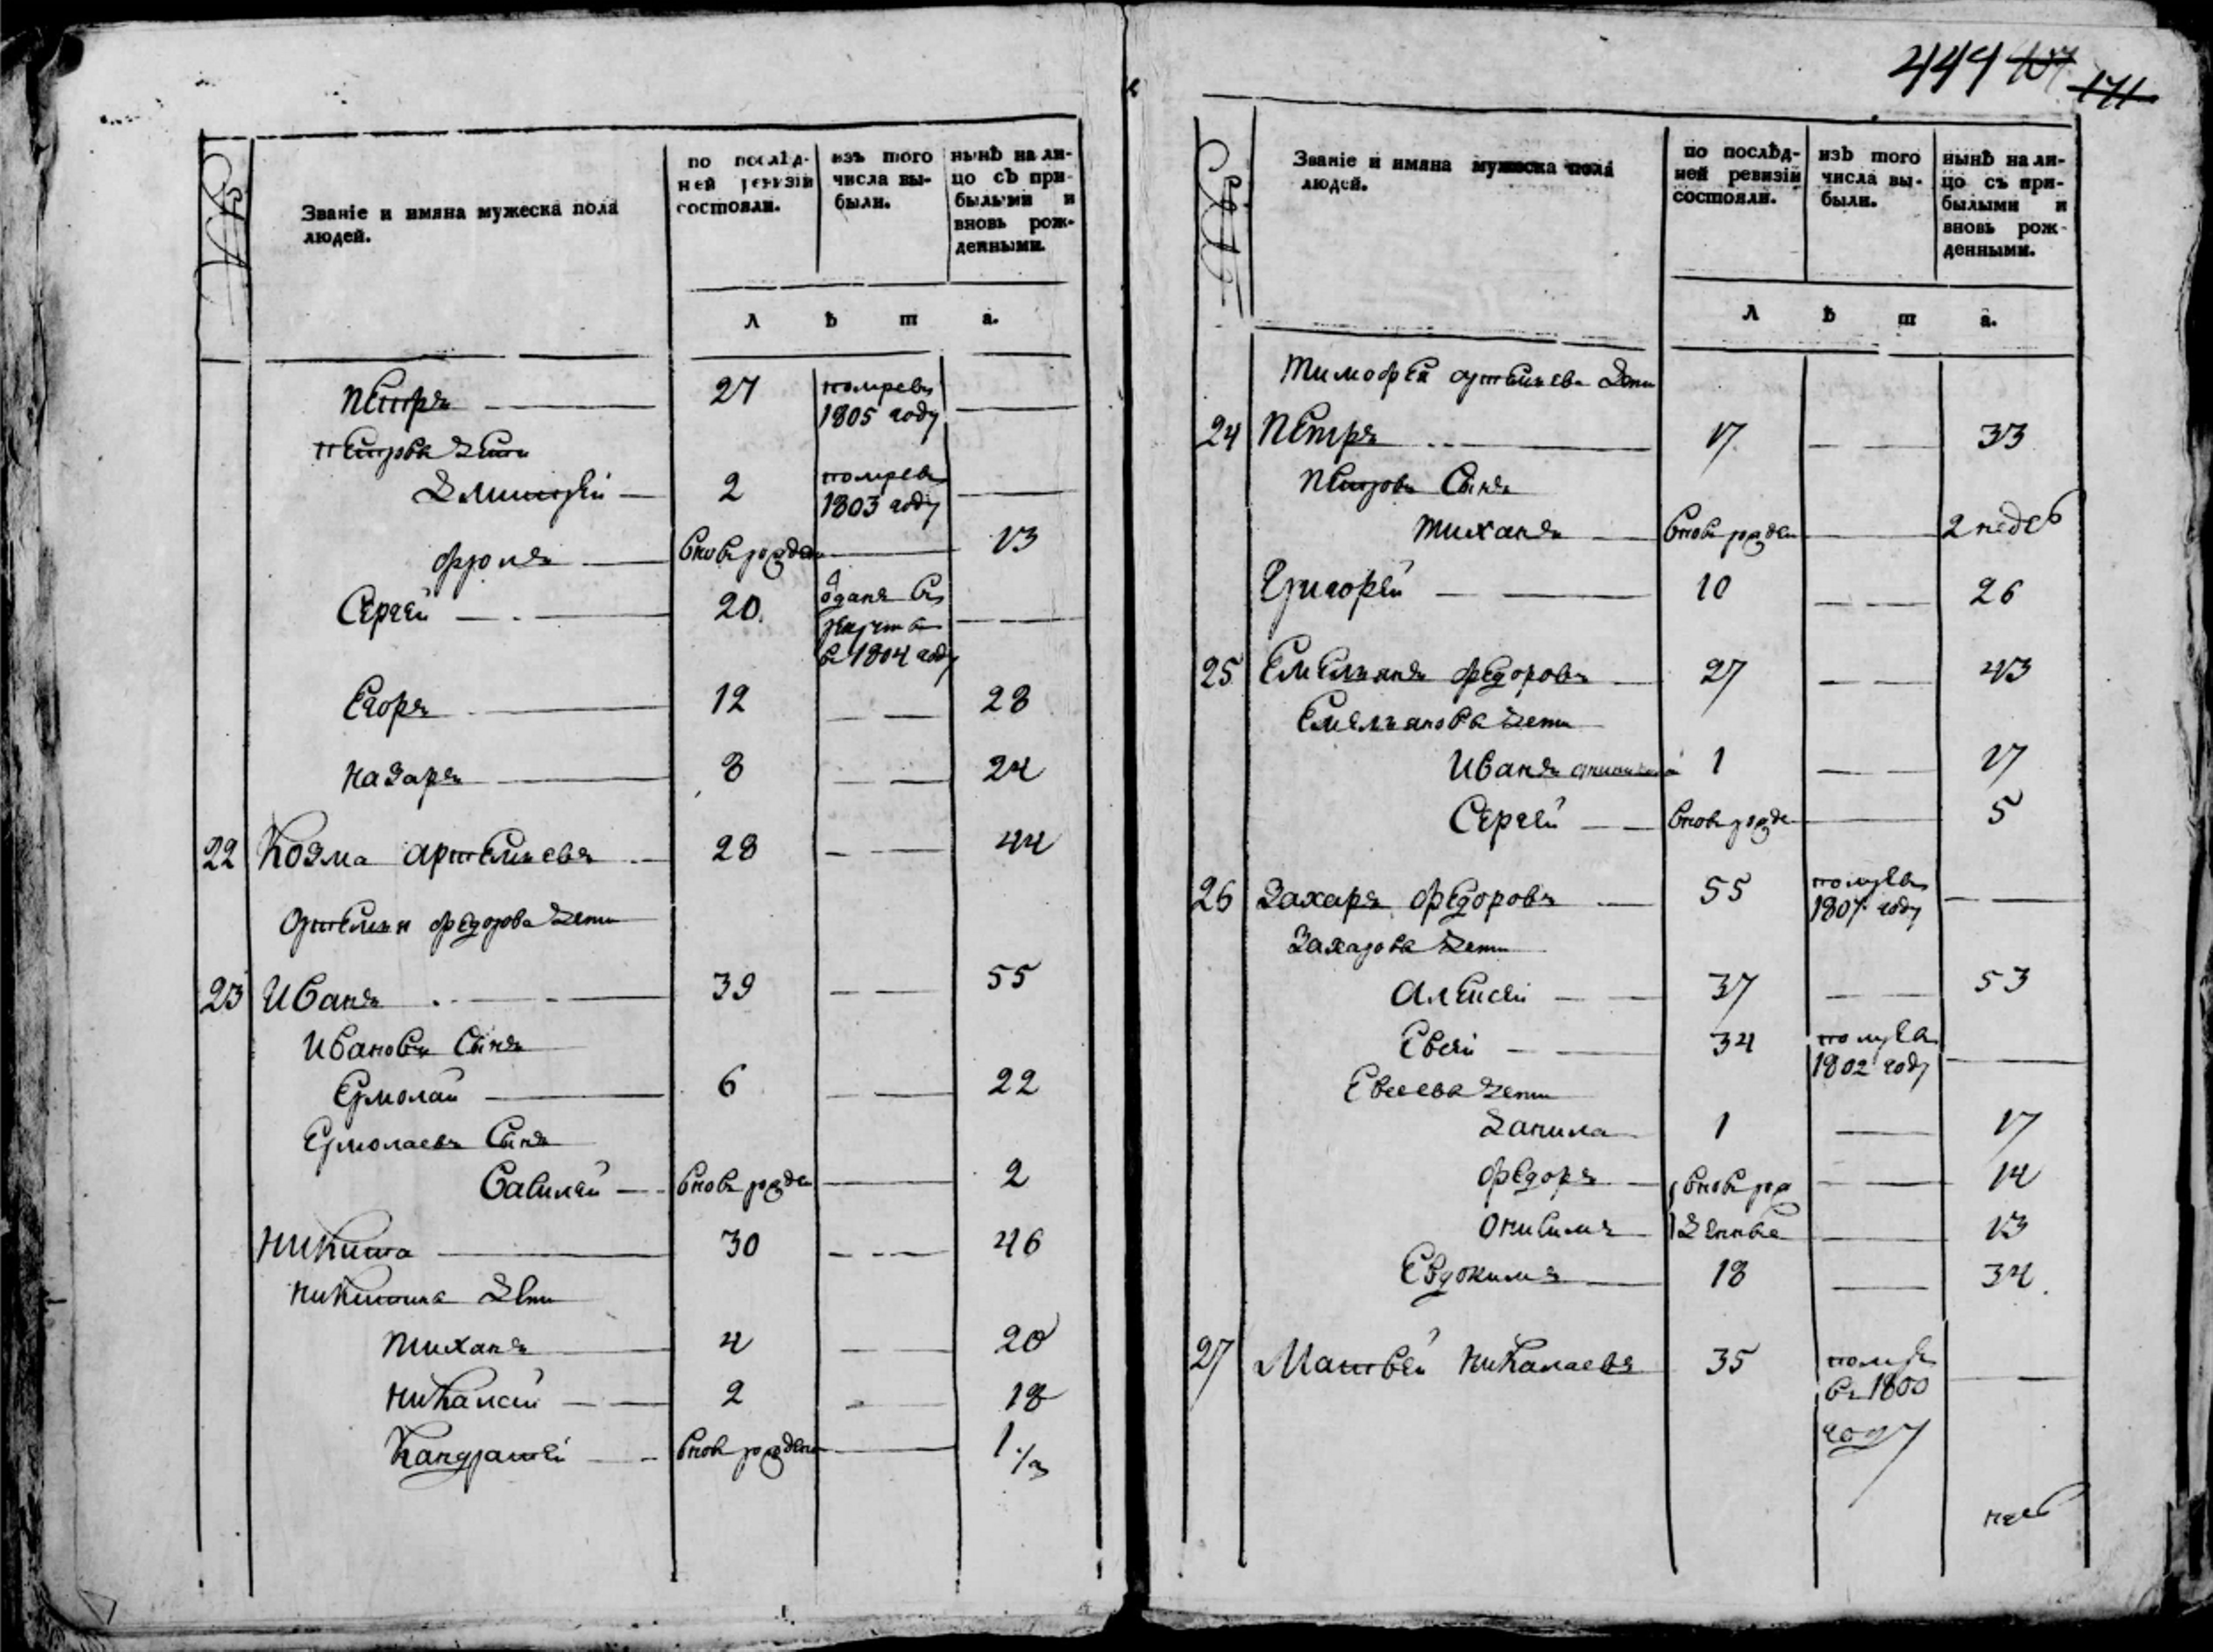 444 107 171
№
Званіе и имяна мужеска пола людей.
по послѣд-
ней ревизіи
состояли.
изъ того
числа вы-
были.
нынѣ на ли-
цо съ при-
былыми и
вновь рож-
денными.
л ѣ т а.
Петръ 27 помревъ
1805 году
Петрова дети
Дмитрей 2 помревъ
1803 году
Фролъ вновь рожден 13
Сергей 20. оданъ въ
рекруты
въ 1804 году
Егоръ 12 28
Назаръ 8 24
22 Козма Артемьевъ 28 44
Артемья Федорова дети
23 Иванъ 39 55
Ивановъ Сынъ
Ермолай 6 22
Ермолаевъ Сынъ
Савилей вновь рожден 2
Никита 30 46
Никитина дети
Тиханъ 4 20
Никалай 2 18
Кандратей вновь рожден 1
№
Званіе и имяна мужеска пола
людей.
по послѣд-
ней ревизіи
состояли.
изъ того
числа вы-
были.
нынѣ на ли-
цо съ при-
былыми и
вновь рож-
денными.
л ѣ т а.
Тимофея Артемьева дети
24 Петръ 17 33
Петровъ Сынъ
Тиханъ вновь рожден 2 недел
Григорей 10 26
25 Емельянъ Федоровъ 27 43
Емельянова дети
Иванъ 1 17
Сергей вновь рожде 5
26 Захаръ Федоровъ 55 помревъ
1807 году
Захарова дети
Алексей 37 53
Евсей 34 помревъ
1802 году
Евсеева дети
Данила 1 17
Федоръ вновь рож 14
Онисимъ денные 13
Евдокимъ 18 34
27 Матвей Никалаевъ 35 помре
въ 1800
году